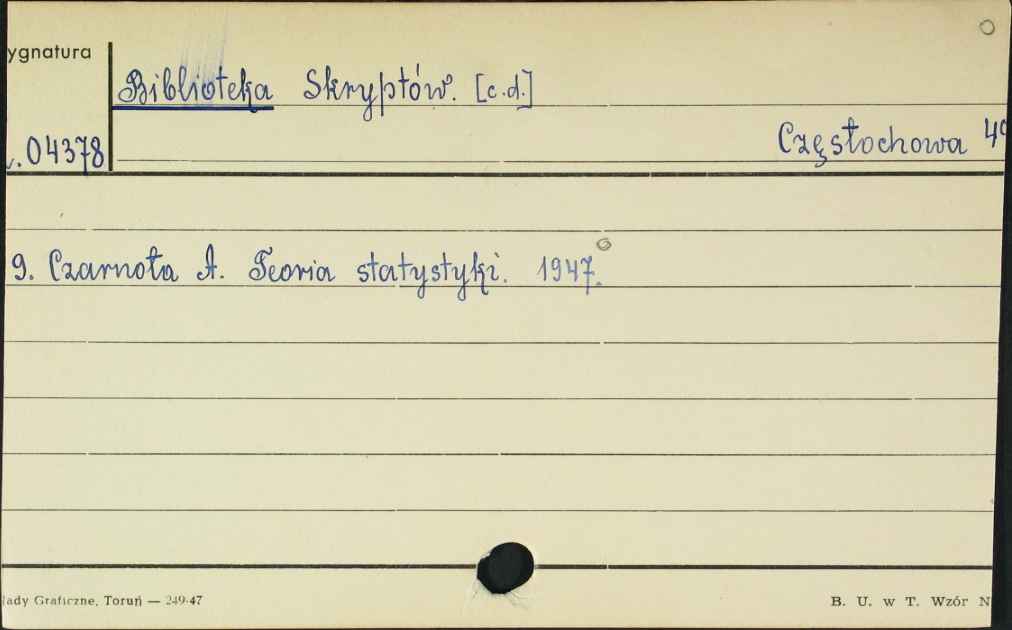 ygnatura
Biblioteka Skryptów. [c.d.]
Częstochowa 4°
04378
9. Czarnota A. Teoria statystyki. 1947.
łady Graficzne, Toruń — 249-47
B. U. w T. Wzór N